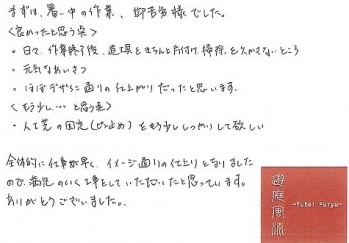 まずは、暑い中の作業、御苦労様でした。
<良かったと思う点>
・日々、作業終了後、道具をきちんと片付け掃除を欠かさないところ
・元気なあいさつ
・ほぼデザイン通りの仕上がりだったと思います。
<もう少し…と思う点>
・人工芝の固定(ピン止め)をもう少ししっかりして欲しい
全体的に仕事が早く、イメージ通りの仕上りとなりました
ので、満足のいく工事をしていただいたと思っています。
ありがとうございました。
遊庭風流
-Yutei Furyu-